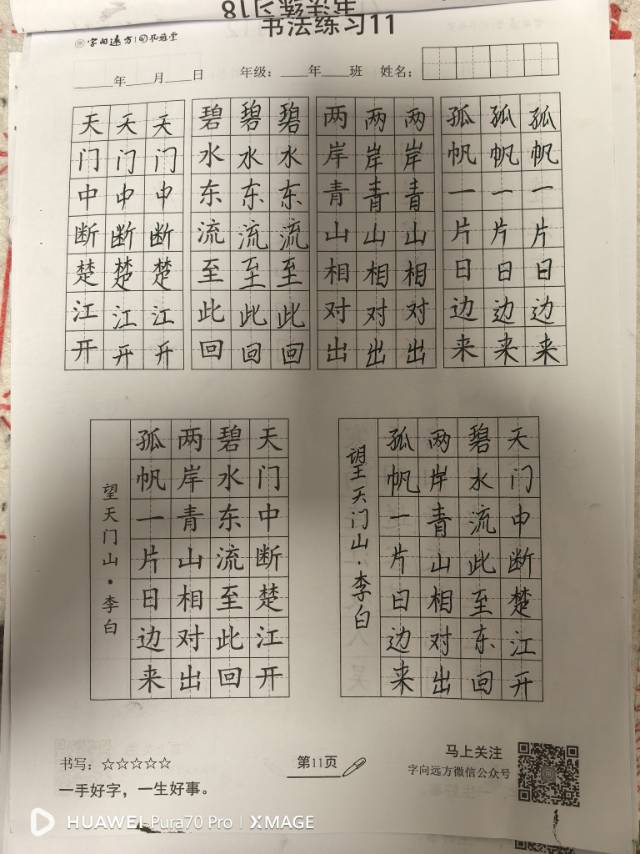 书法练习18
书法练习11
字向远方
____年____月____日 年级：____年____班 姓名：
天门中断楚江开
天门中断楚江开
天门中断楚江开
碧水东流至此回
碧水东流至此回
碧水东流至此回
两岸青山相对出
两岸青山相对出
两岸青山相对出
孤帆一片日边来
孤帆一片日边来
孤帆一片日边来
望天门山·李白
天门中断楚江开
碧水东流至此回
两岸青山相对出
孤帆一片日边来
望天门山·李白
天门中断楚江开
碧水流此至东回
两岸青山相对出
孤帆一片日边来
书写：☆☆☆☆☆
一手好字，一生好事。
第11页
马上关注
字向远方微信公众号
HUAWEI Pura70 Pro | XMAGE